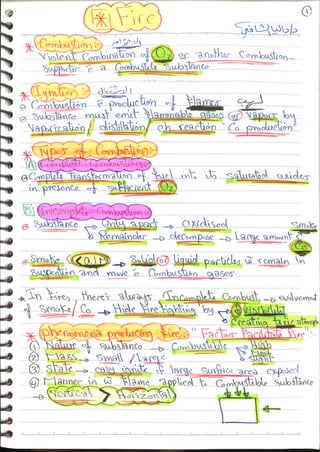 ①
* Fire
* Combustion:
Violent Combination of O2 or another Combustion-
Supporter e a Combustible Substance
* Ignition:
Combustion e production of Flames
Substance must emit Flammable gases or Vapors by
Vaporization / distillation / ch reaction Co production
* Types of Combustion:
A Complete Combustion:
Complete Transformation of fuel into its saturated oxides
in presence of sufficient O2
B Incomplete Combustion:
Substance → Only a part → oxidised
Remainder → decompose → Large amount Smoke
Co
Smoke < air → Solid or liquid particles w remain in
Suspention and move e Combustion gases
* In Fire, there's always Incomplete Combust. → evolvement
of Smoke / Co → Hide Fire fighting by → ↓ Visibility
→ Creating toxic atmosph
* Phenomena producing Fire: "Factors Facilitate Fire"
① Nature of substance → Combustible → High
→ Med
→ slight
② Mass → Small / Large
③ State → easy ignite if large surface area exposed
④ Manner in w Flame applied to Combustible substance
→ Vertical > Horizontal